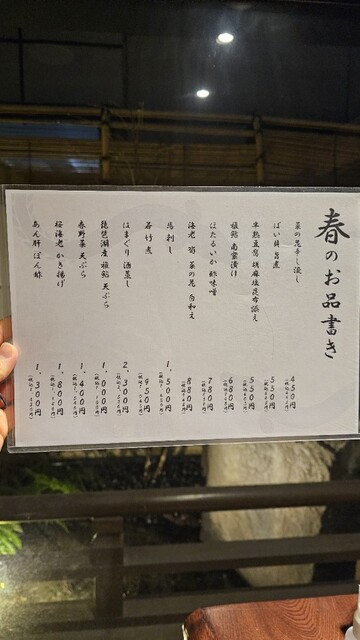 春のお品書き
菜の花辛し浸し 450円
ばい貝旨煮 550円
半熟豆腐 胡麻塩昆布添え 550円
稚鮎 南蛮漬け 680円
ほたるいか 酢味噌 780円
海老 筍 菜の花 白和え 880円
馬刺し 1,500円
若竹煮 950円
はまぐり 酒蒸し 2,300円
琵琶湖産 稚鮎 天ぷら 1,000円
春野菜 天ぷら 1,400円
桜海老 かき揚げ 1,800円
あん肝 ぽん酢 1,300円